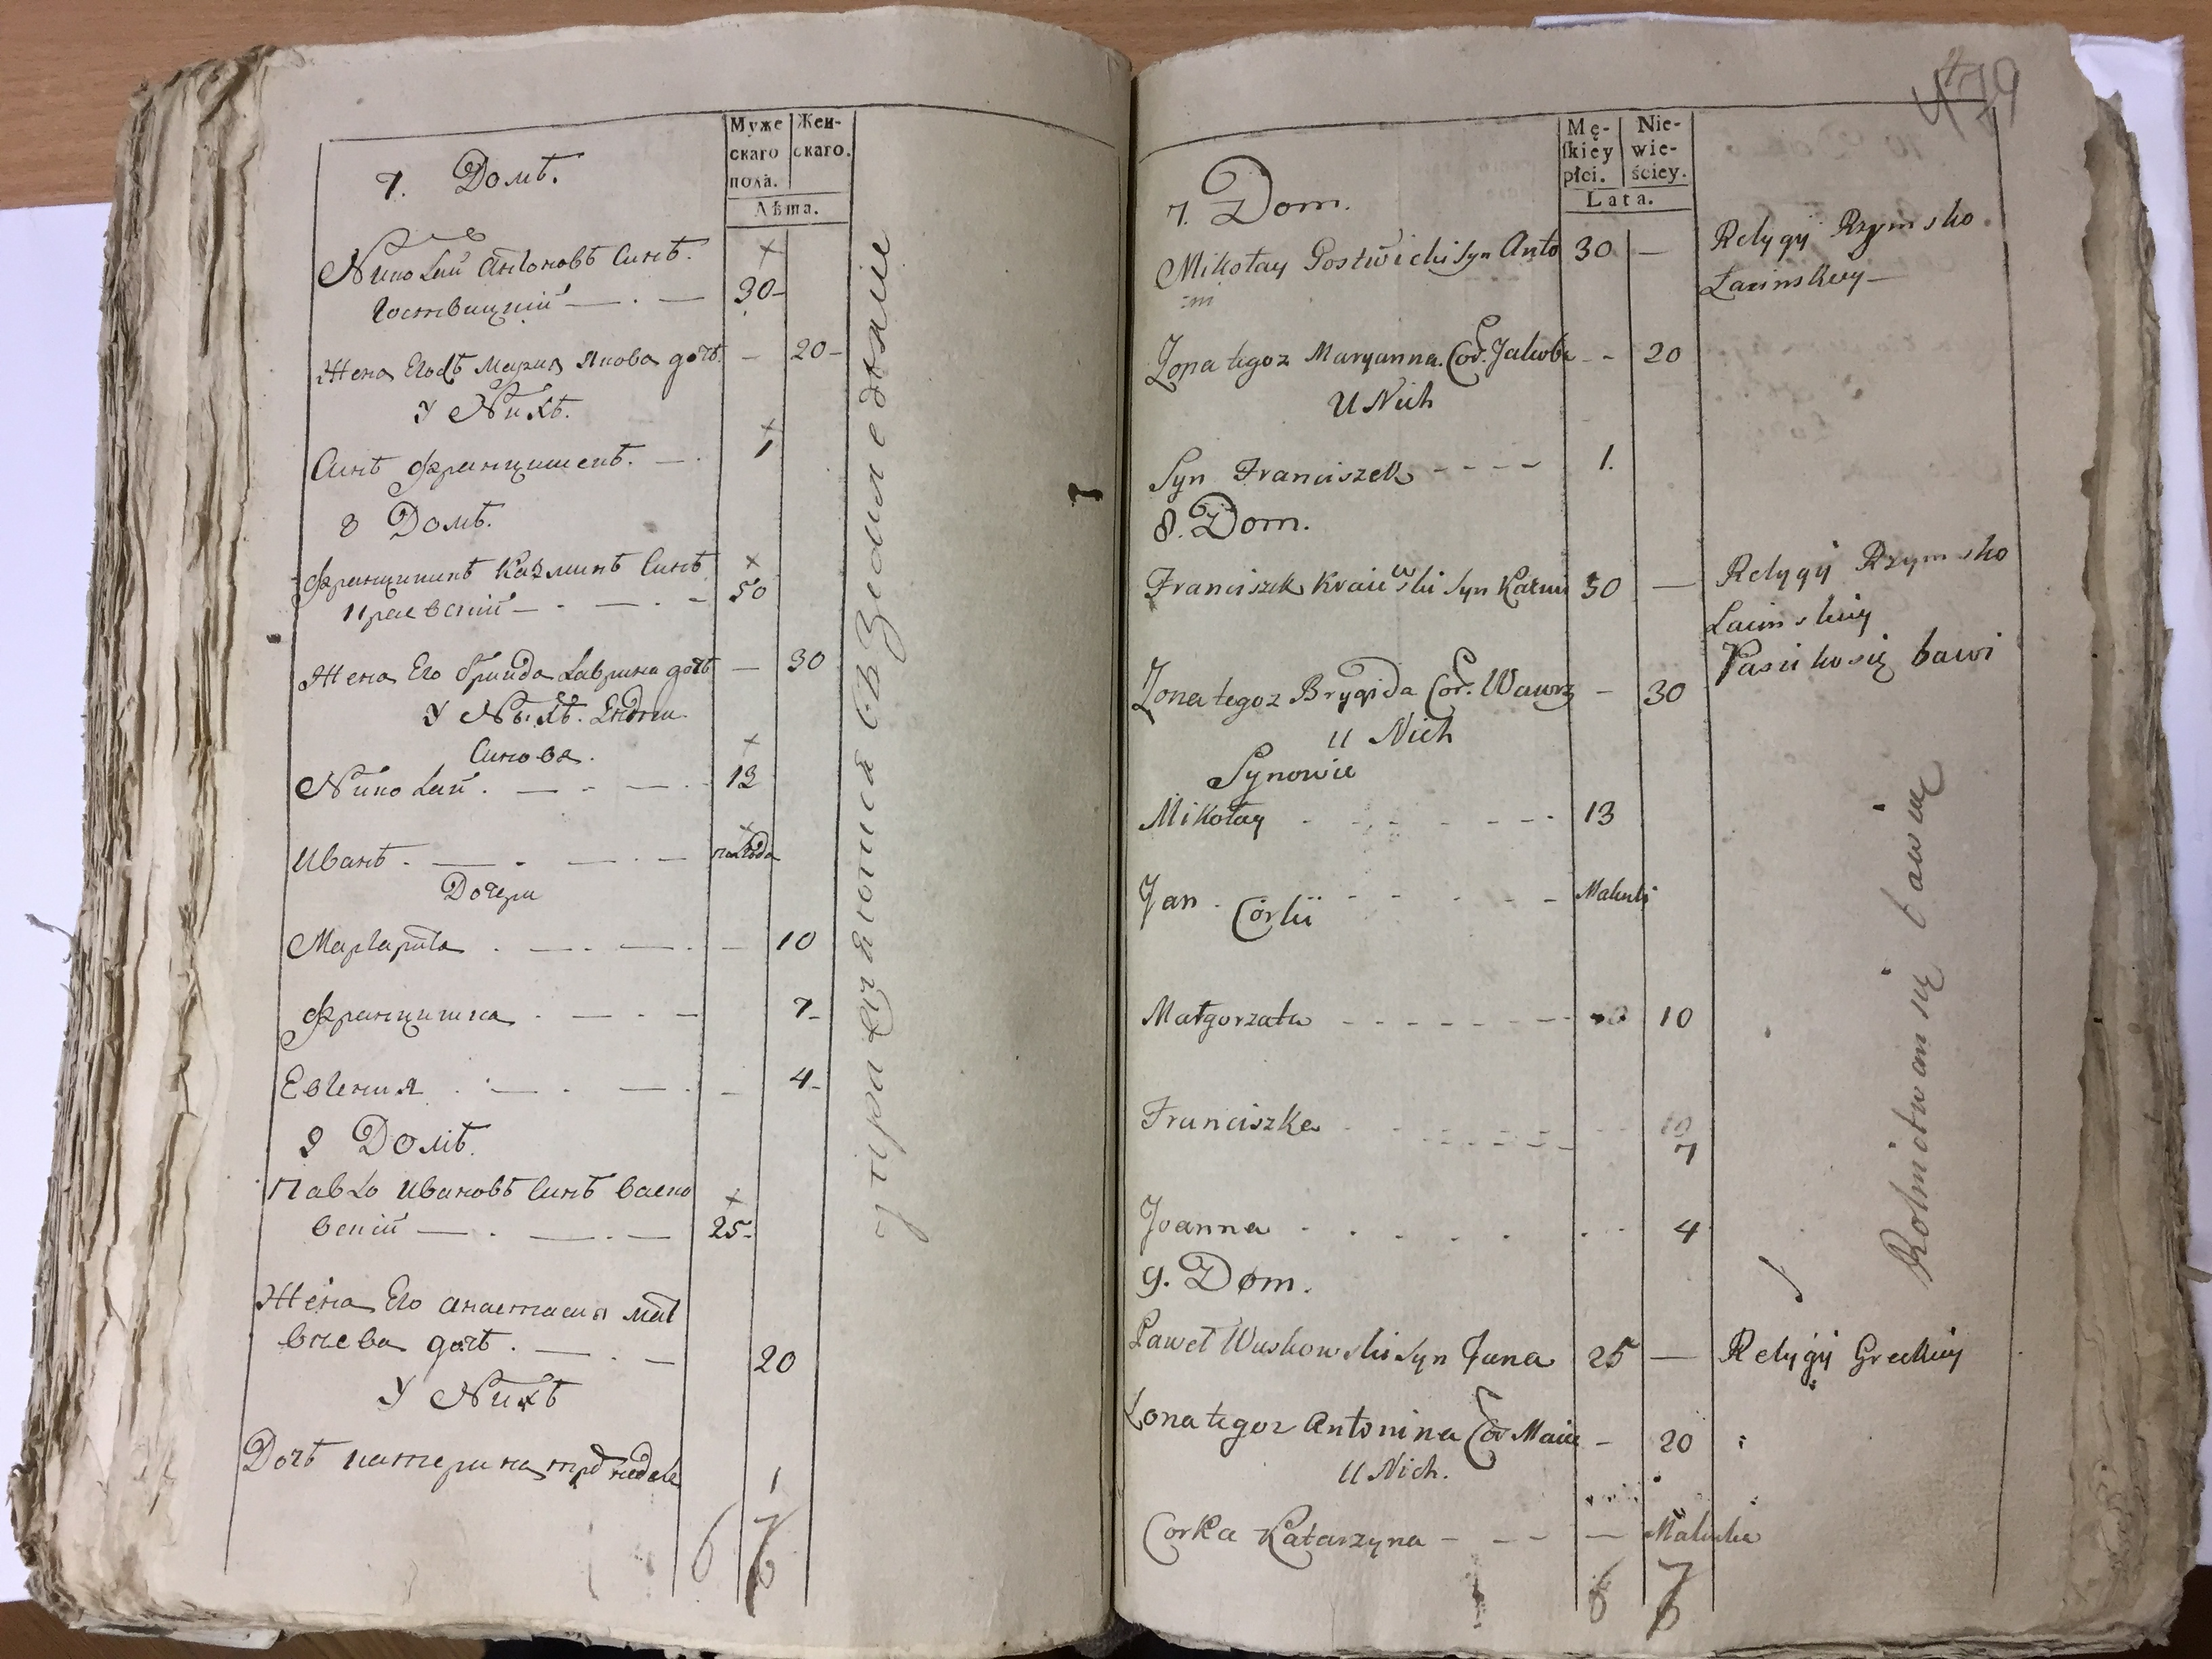 Муже
скаго
пола.
Жен-
скаго.
Лѣта.
7. Домъ.
Николай Антоновъ Синъ.
Гоствицкій — . — 30-
Жена Егожъ Мария Якова дочь. — 20-
У Нихъ.
Синъ Францишекъ. — . 1
8 Домъ.
Францишкъ Казминъ Синъ
Краевскій — . — . - 50
Жена Его Бригида Лаврина дочь — 30
У Нихъ.
Синова.
Николай . — - — . 13
Иванъ . — . — . — полгода
Дочери
Маргарита . — . — . — 10
Францишка . — . — 7-
Евгения . — . — . - 4-
9 Домъ.
Павло Ивановъ Синъ Васко
вскій — . — . — 25-
Жена Его Анастасия Мат
вѣева дочь . — . — 20
У Нихъ
Дочь Катерина трӣ недѣле 1
6 7
упражняются въ Земледелие
479
Mę-
skiey
płci.
Nie-
wie-
ściey.
Lata.
7. Dom.
Mikołay Gostwicki syn Anto 30 —
ni
Religij Rzymsko
Łacinskiey —
Zona tegoz Maryanna Cor. Jakoba - - 20
U Nich
Syn Franciszek - - - - 1.
8. Dom.
Franciszek Kraiewski syn Kaźmi 50 —
Religij Rzymsko
Łacinskiey
Pasieko się bawi
Zona tegoz Brygida Cor. Wawrz - 30
U Nich
Synowie
Mikołay - - - - - - 13
Jan . - - - - - Maluti
Córki
Małgorzata - - - - - - - 10
Franciszka - - - - - - 7
Joanna - . . . . . . . 4
9. Dom.
Paweł Waskowski syn Jana 25 —
Religij Greckiey
Zona tegoz Antonina Cor Macie - 20
U Nich.
Corka Katarzyna - - - — Malutka
6 7
Rolnictwem się bawią